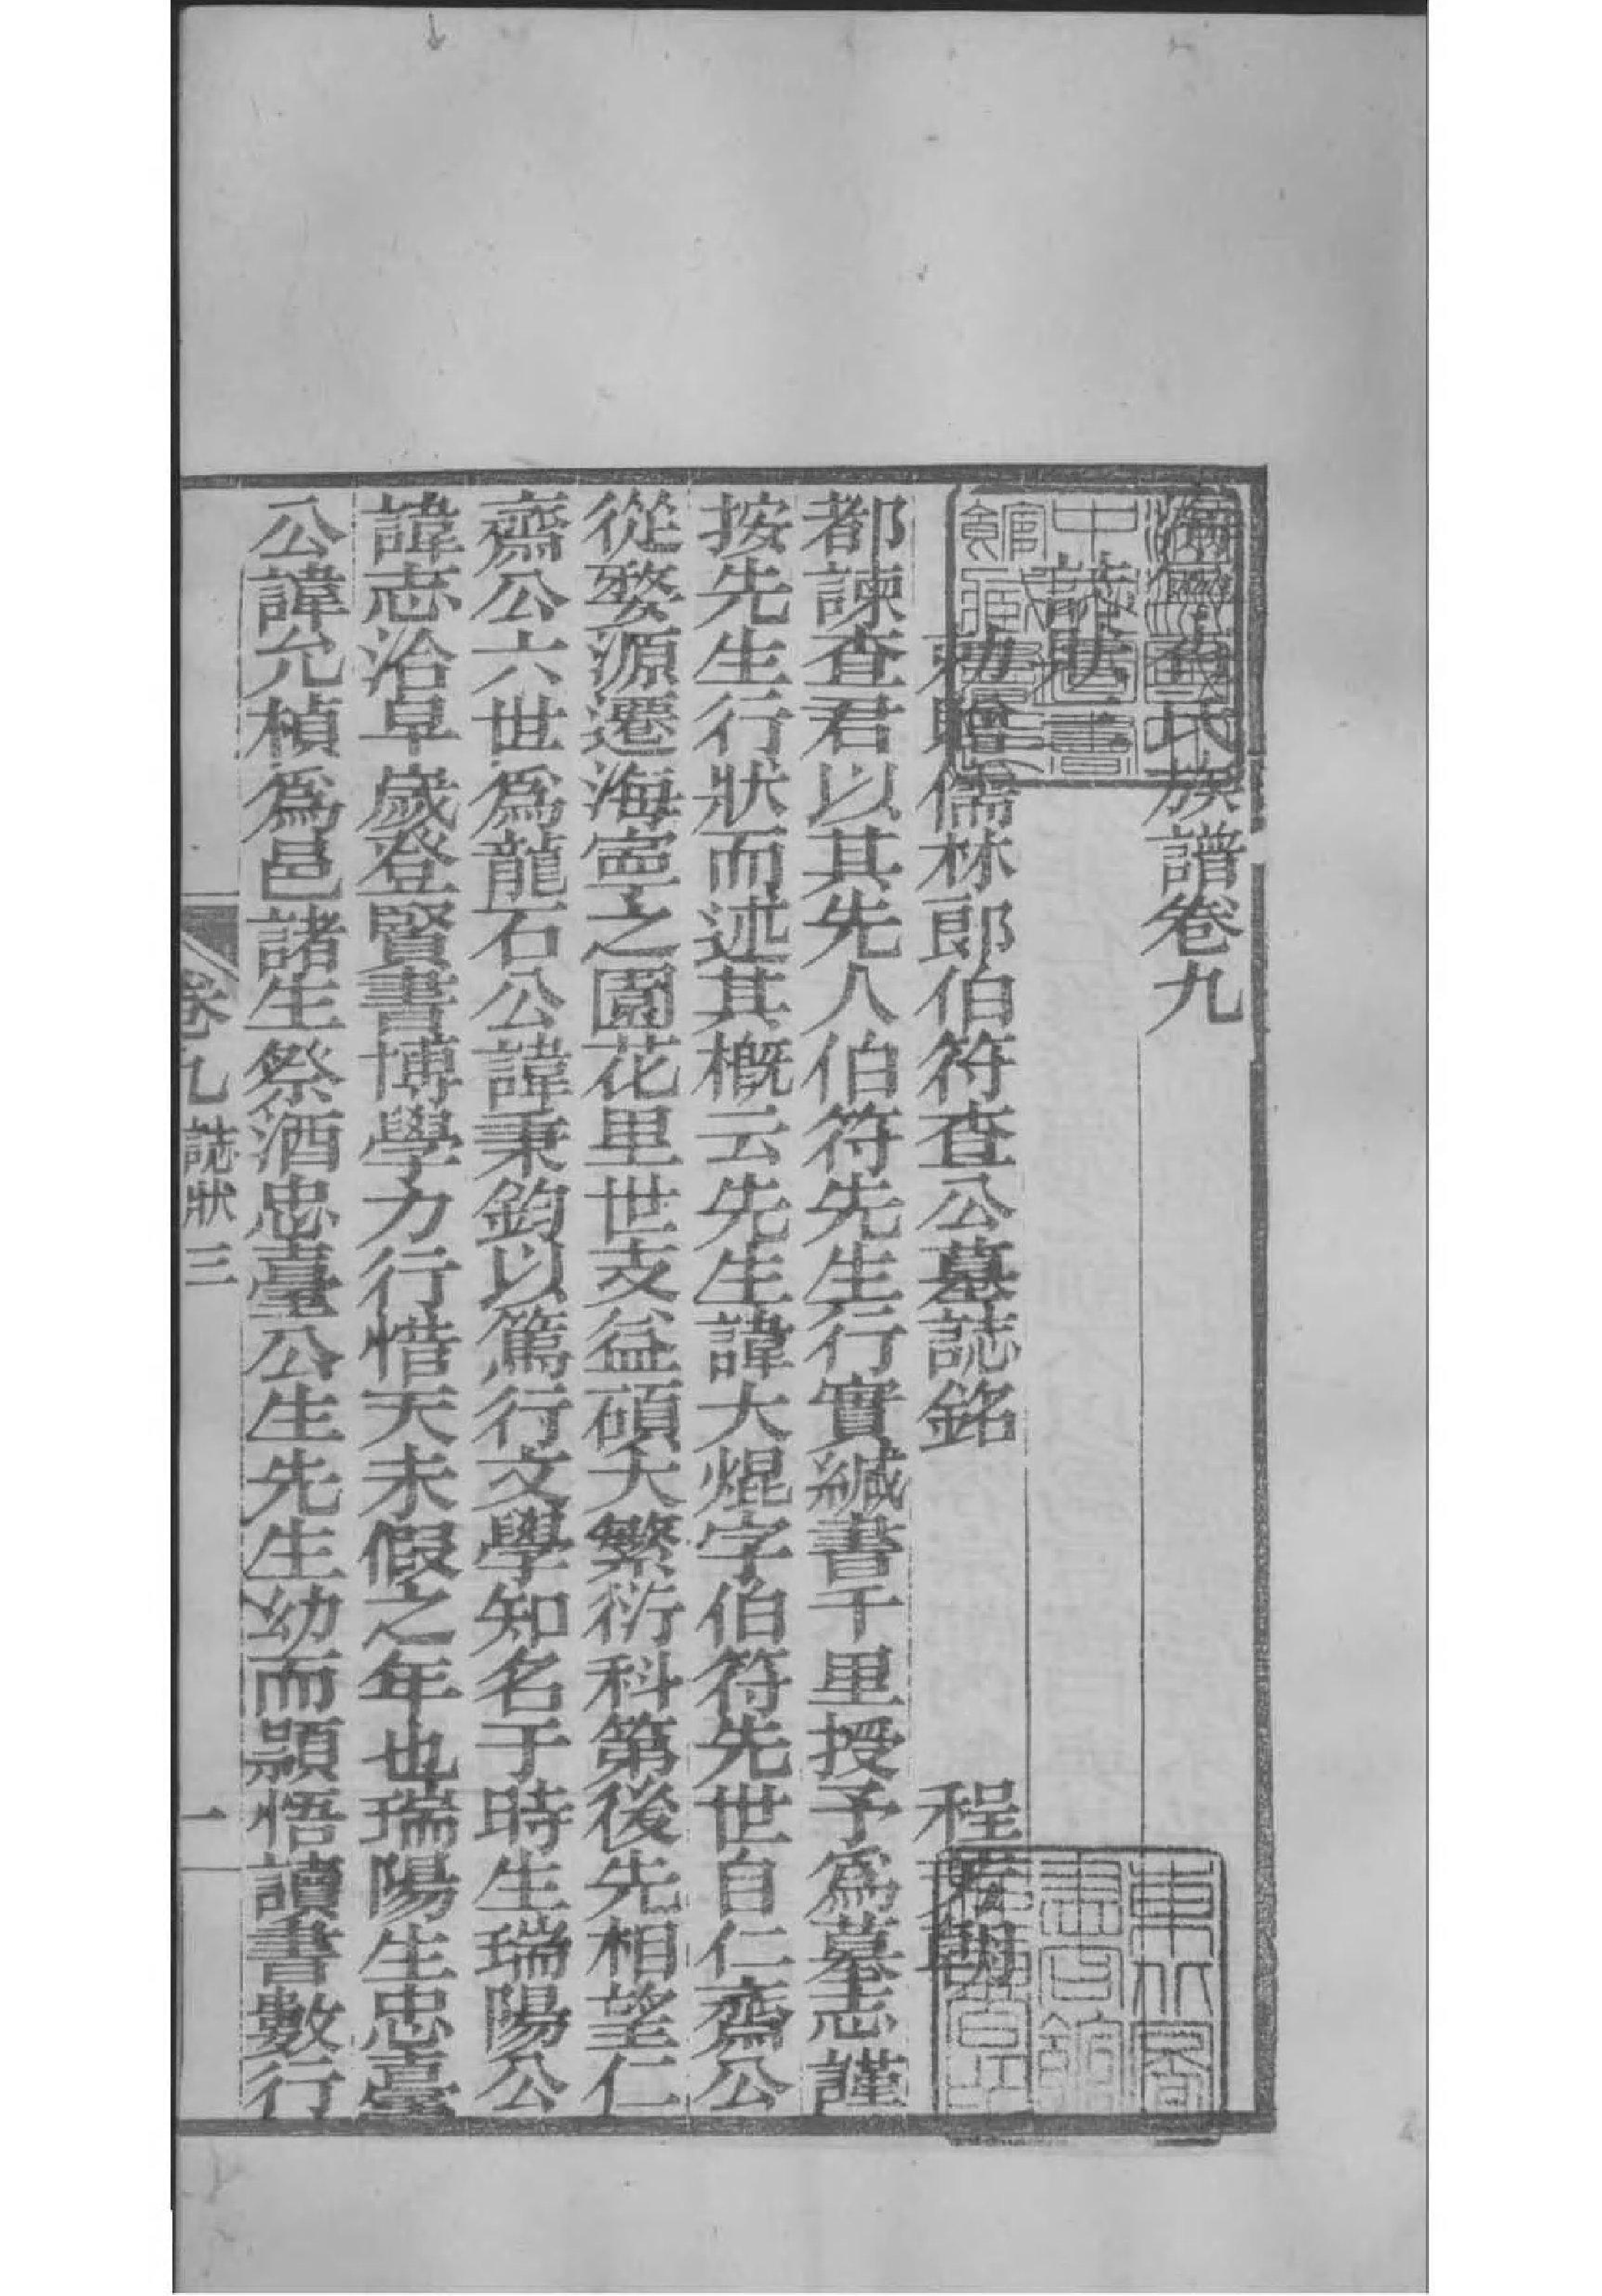 海寧查氏族譜卷九
誌狀三
勅贈儒林郎伯符查公墓誌銘　程
都諫查君以其先人伯符先生行實緘書千里授予爲墓志謹
按先生行狀而述其概云先生諱大焜字伯符先世自仁齋公
從婺源遷海寧之園花里世支益碩大繁衍科第後先相望仁
齋公六世爲龍石公諱秉鈞以篤行文學知名于時生瑞陽公
諱志洽早歲登賢書博學力行惜天未假之年也瑞陽生忠臺
公諱允楨爲邑諸生祭酒忠臺公生先生幼而穎悟讀書數行
卷九 誌狀三 一